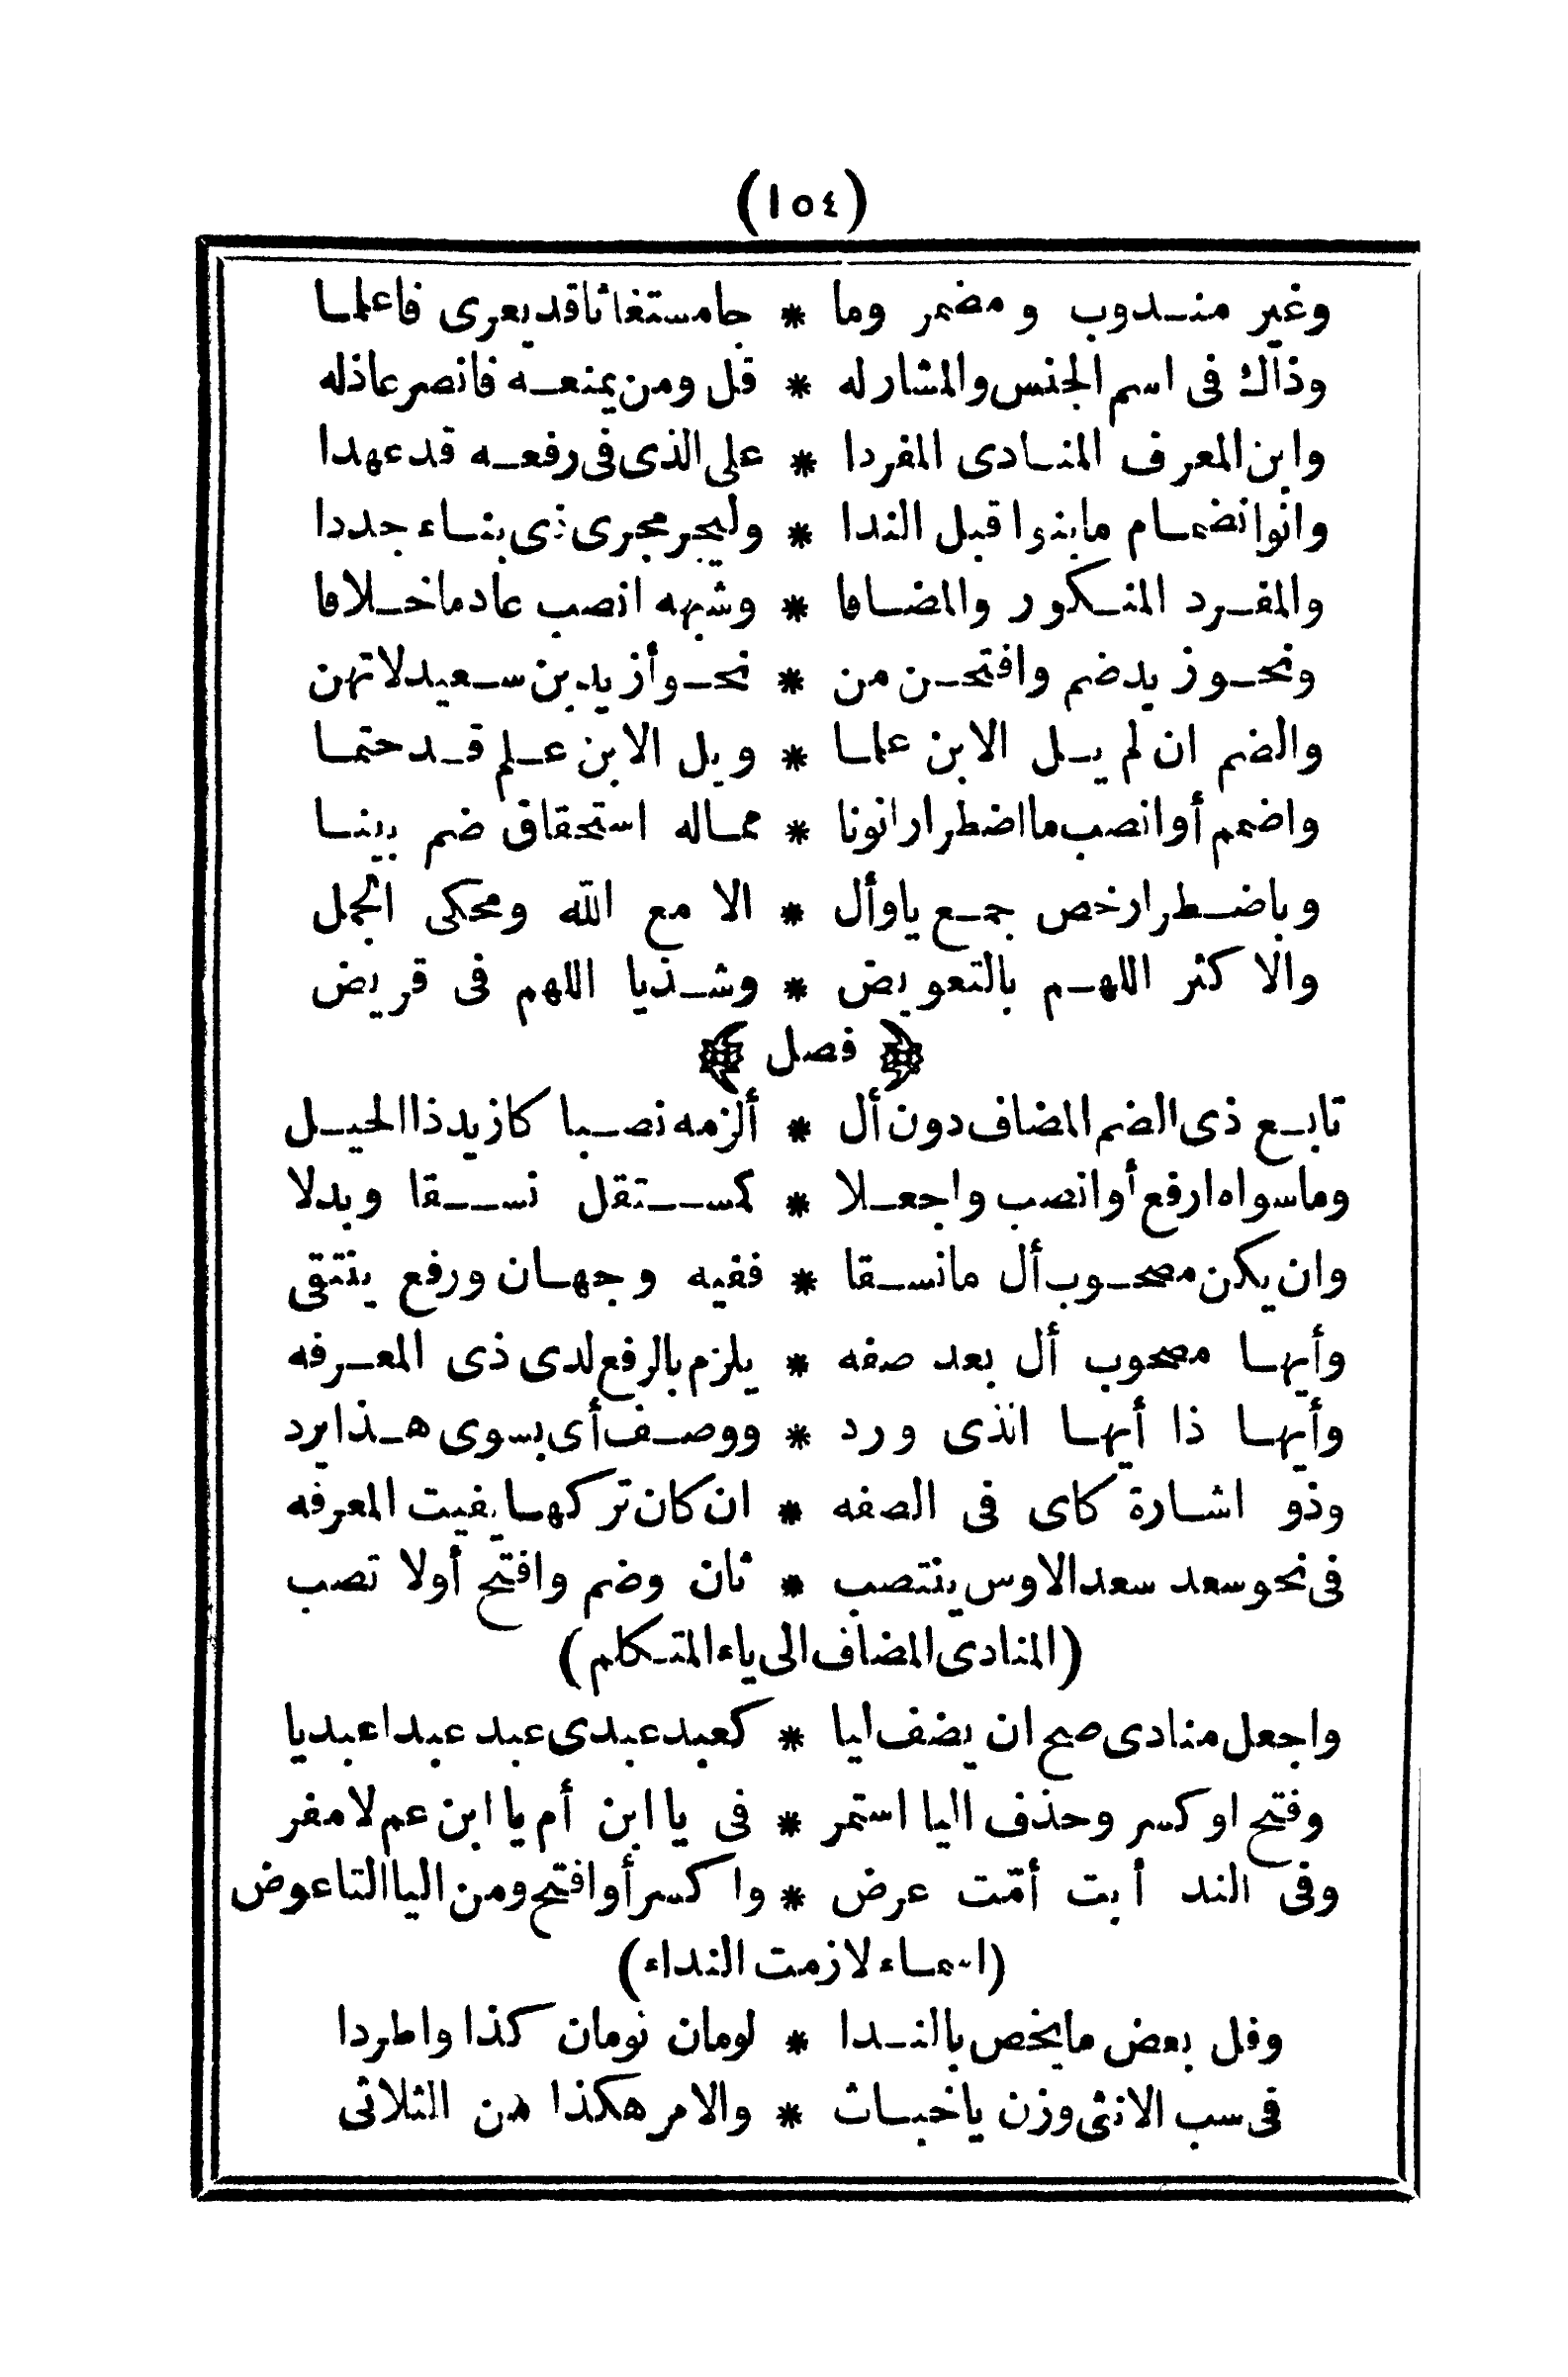 (١٥٤)
وغير مندوب ومضمر وما * جا مستغاثا قد يعرى فاعلما
وذاك فى اسم الجنس والمشار له * قل ومن يمنعه فانصر عاذله
وابن المعرف المنادى المفردا * على الذى فى رفعه قد عهدا
وانوا انضمام ما بنوا قبل الندا * وليجر مجرى ذى بناء جددا
والمفرد المنكور والمضافا * وشبهه انصب عادما خلافا
ونحو زيد ضم وافتحن من * نحو أزيد بن سعيد لا تهن
والضم ان لم يل الابن علما * ويل الابن علم قد حتما
واضمم أو انصب ما اضطرارا نونا * مما له استحقاق ضم بينا
وباضطرار خص جمع يا وأل * الا مع الله ومحكى الجمل
والاكثر اللهم بالتعويض * وشذ يا اللهم فى قريض
﴿ فصل ﴾
تابع ذى الضم المضاف دون أل * ألزمه نصبا كازيد ذا الحيل
وما سواه ارفع أو انصب واجعلا * كمستقل نسقا وبدلا
وان يكن مصحوب أل ما نسقا * ففيه وجهان ورفع ينتقى
وأيها مصحوب أل بعد صفه * يلزم بالرفع لدى ذى المعرفه
وأيها ذا أيها الذى ورد * ووصف أى بسوى هذا يرد
وذو اشارة كاى فى الصفه * ان كان تركها يفيت المعرفه
فى نحو سعد سعد الاوس ينتصب * ثان وضم وافتح أولا تصب
(المنادى المضاف الى ياء المتكلم)
واجعل منادى صح ان يضف ليا * كعبد عبدى عبد عبدا عبديا
وفتح او كسر وحذف اليا استمر * فى يا ابن أم يا ابن عم لا مفر
وفى الند أبت أمّت عرض * واكسر أو افتح ومن اليا التا عوض
(اسماء لازمت النداء)
وفل بعض ما يخص بالندا * لومان نومان كذا واطردا
فى سب الانثى وزن يا خباث * والامر هكذا من الثلاثى